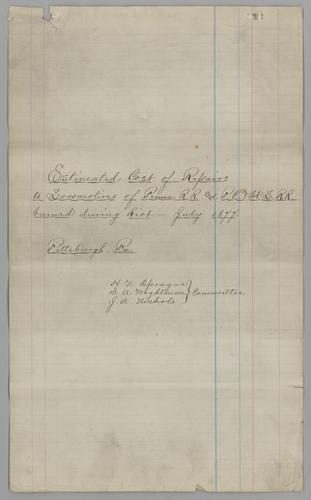 Estimated Cost of Repairs
to Locomotives of Penna R.R. & P.C. & St. L. R.R.
burned during Riot — July 1877.
Pittsburgh Pa
H N Sprague
D. A. Wightman } Committee
J. A. Nichols